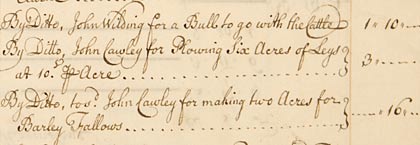 By Ditto, John Wilding for a Bull to go with the Cattle 1 " 10 "
By Ditto, John Cawley for Plowing Six Acres of Leys
at 10.s p Acre 3 "
By Ditto, to s.d John Cawley for making two Acres for
Barley Fallows " 16 "